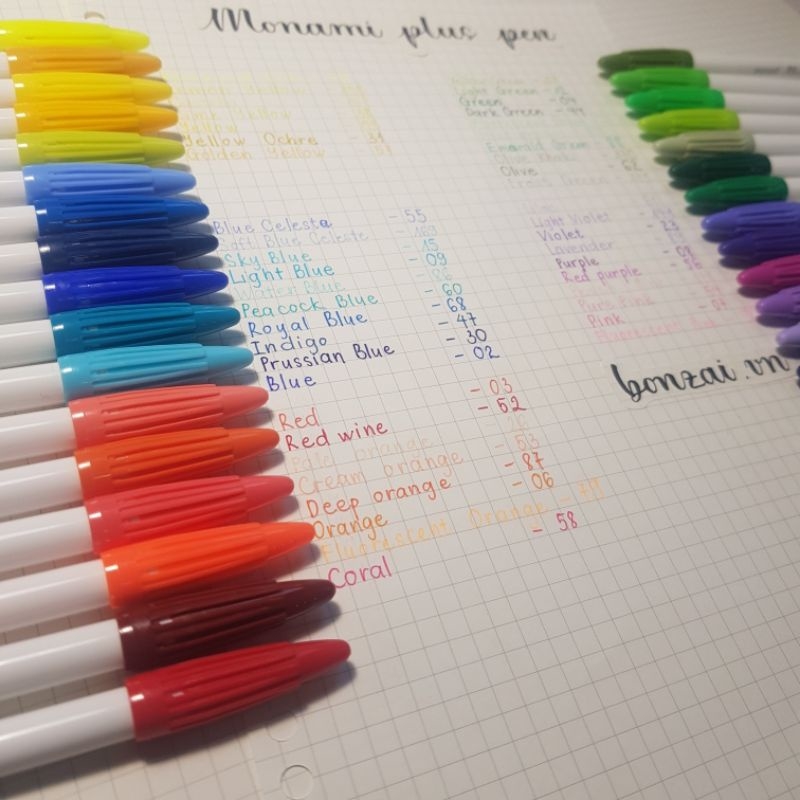 Monami plus pen
Yellow
Yellow
Yellow
Yellow Ochre - 31
Golden Yellow
Blue Celesta - 55
Soft Blue Celeste - 169
Sky Blue - 15
Light Blue - 09
Water Blue - 86
Peacock Blue - 60
Royal Blue - 68
Indigo - 47
Prussian Blue - 30
Blue - 02
Red - 03
Red wine - 52
Pale orange
Cream orange - 53
Deep orange - 87
Orange - 06
Fluorescent Orange
Coral - 58
Light Green
Green - 04
Dark Green
Emerald Green
Olive Khaki
Olive - 62
Frost Green
Light Violet
Violet - 23
Lavender
Purple - 08
Red purple
Pure Pink
Pink - 07
Fluorescent
bonzai.vn